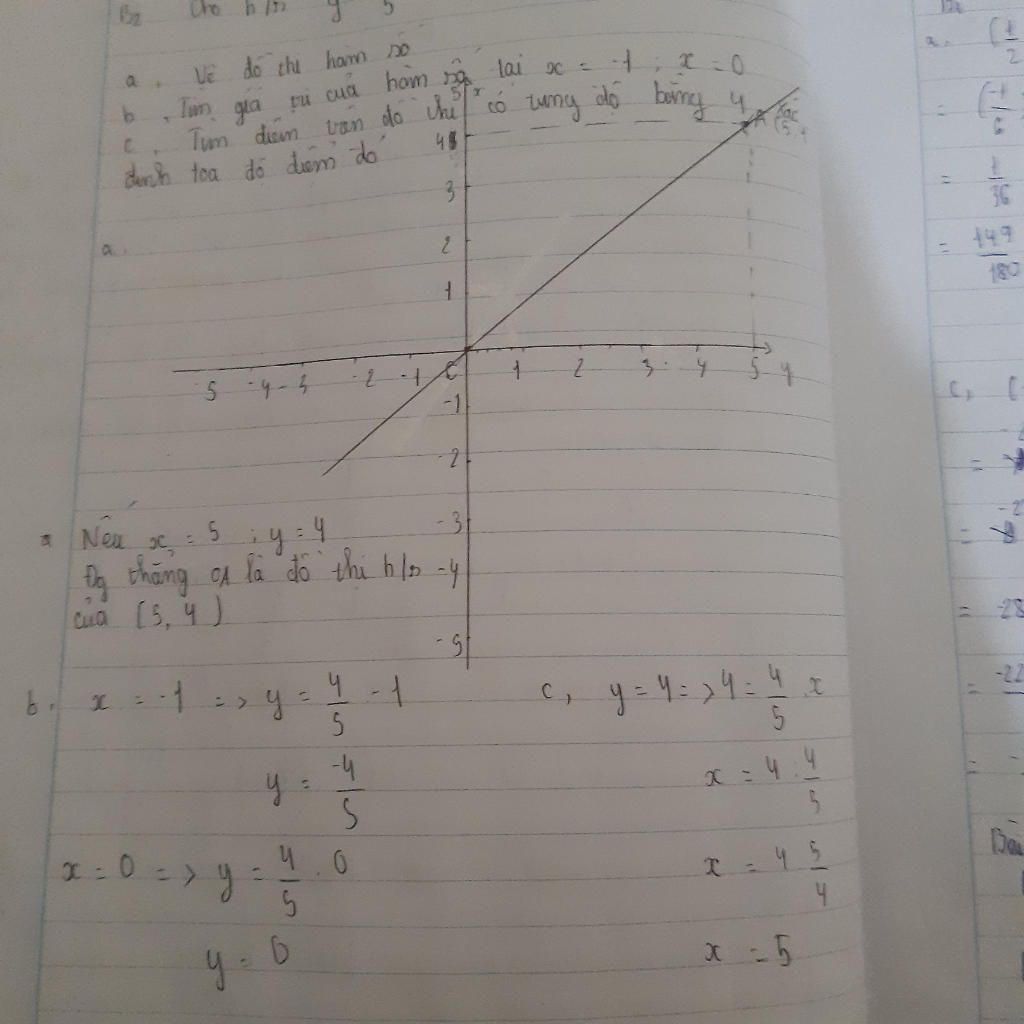 B2 Cho h/s y 5
a, Vẽ đồ thị hàm số
b, Tìm giá trị của hàm số tại x = -1 ; x = 0
c, Tìm điểm trên đồ thị có tung độ bằng 4
định tọa độ điểm đó
a.
5 x
4
3
2
1
5 -4 -3 -2 -1 O 1 2 3 4 5 y
A
-1
-2
-3
-4
-5
Nếu x = 5 ; y = 4
Đg thẳng OA là đồ thị h/s
của (5, 4)
b. x = -1 => y = 4/5 . -1
y = -4/5
x = 0 => y = 4/5 . 0
y = 0
c, y = 4 => 4 = 4/5 . x
x = 4 . 4/5
x = 4 5/4
x = 5
a. (1/2
= (-1/6
= 1/36
= 149/180
c, (-
= -28
= -22
Bài